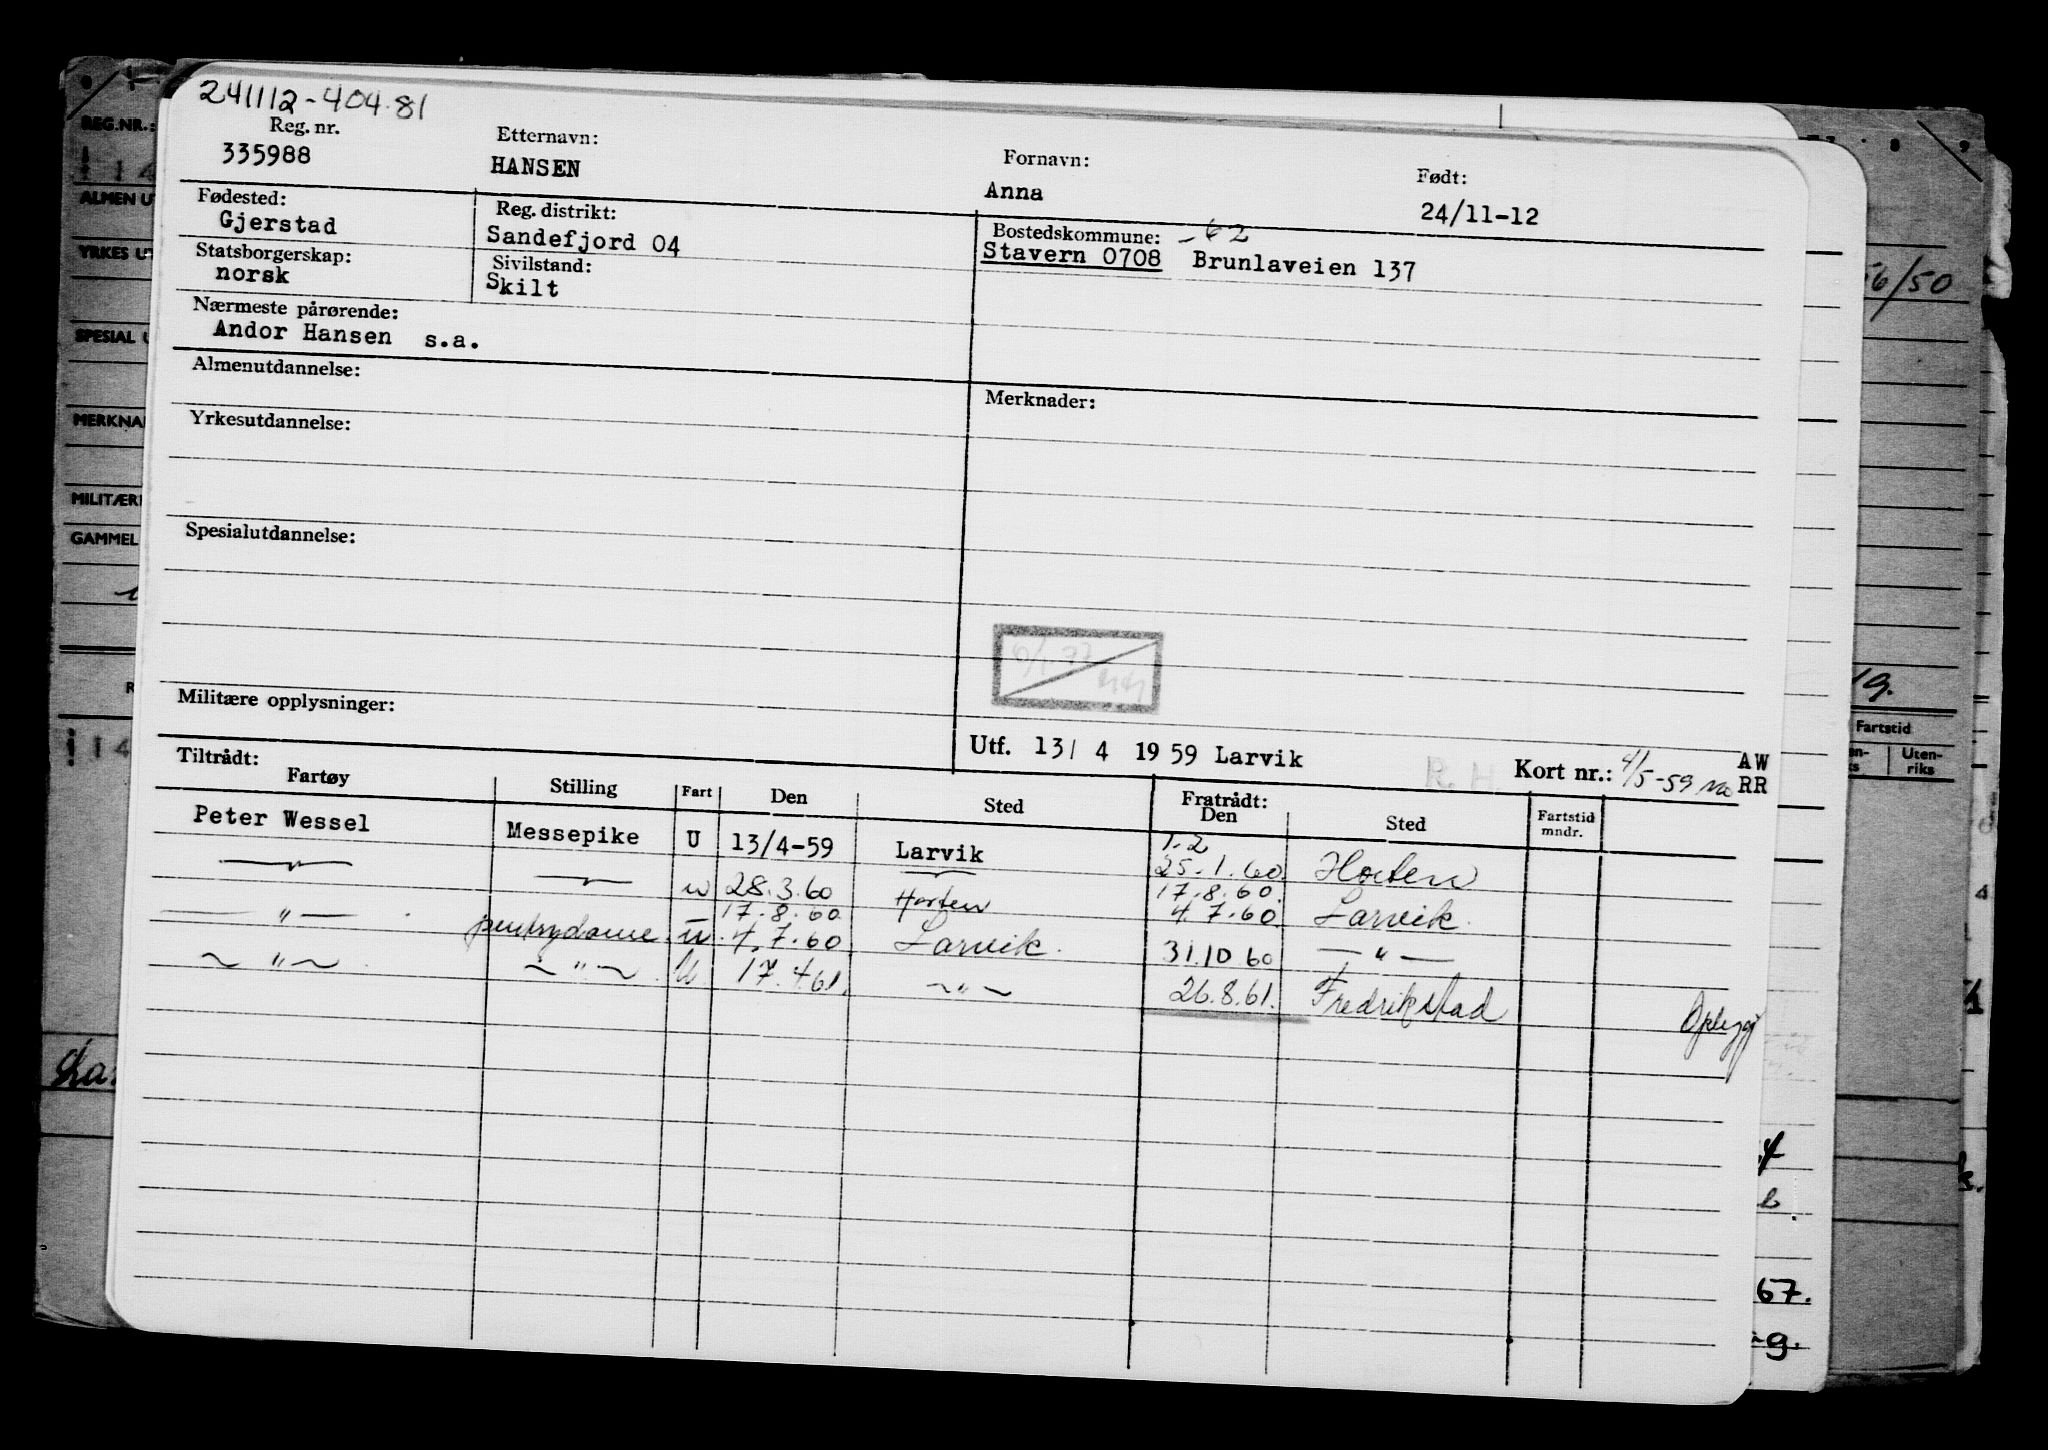 241112-404.81
Reg. nr. Etternavn: Fornavn: Født:
335988 HANSEN Anna 24/11-12
Fødested: Reg. distrikt: Bostedskommune: -62
Gjerstad Sandefjord 04 Stavern 0708 Brunlaveien 137
Statsborgerskap: Sivilstand:
norsk Skilt
Nærmeste pårørende:
Andor Hansen s.a.
Almenutdannelse: Merknader:
Yrkesutdannelse:
Spesialutdannelse:
Militære opplysninger:
Utf. 13/ 4 1959 Larvik Kort nr.: 4/5-59 AW
RR
Tiltrådt: Fratrådt:
Fartøy Stilling Fart Den Sted Den Sted Fartstid
mndr.
Peter Wessel Messepike U 13/4-59 Larvik 1.2
25.1.60. Horten
— " — — " — u 28.3.60 Horten 17.8.60.
17.8.60 4.7.60 Larvik.
— " — pentrydame. u. 4.7.60 Larvik. 31.10 60 — " —
~ " ~ ~ " ~ U. 17.4.61. ~ " ~ 26.8.61. Fredrikstad
REG.NR.:
ALMEN U
YRKES UT
SPESIAL U
MERKNA
MILITÆR
GAMMEL
8 9
56/50
19.
Fartstid
Uten-
riks
67.